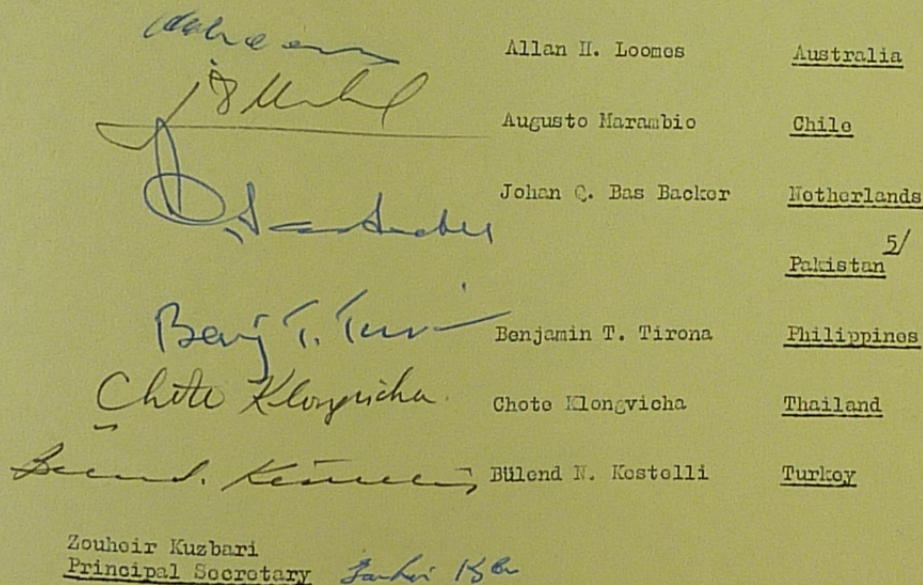 Allan H. Loomes Australia
Augusto Marambio Chile
Johan Q. Bas Backer Netherlands
Pakistan 5/
Benj T. Benjamin T. Tirona Philippines
Chote Klongvicha Chote Klongvicha Thailand
Bülend N. Kestelli Turkey
Zouheir Kuzbari
Principal Secretary